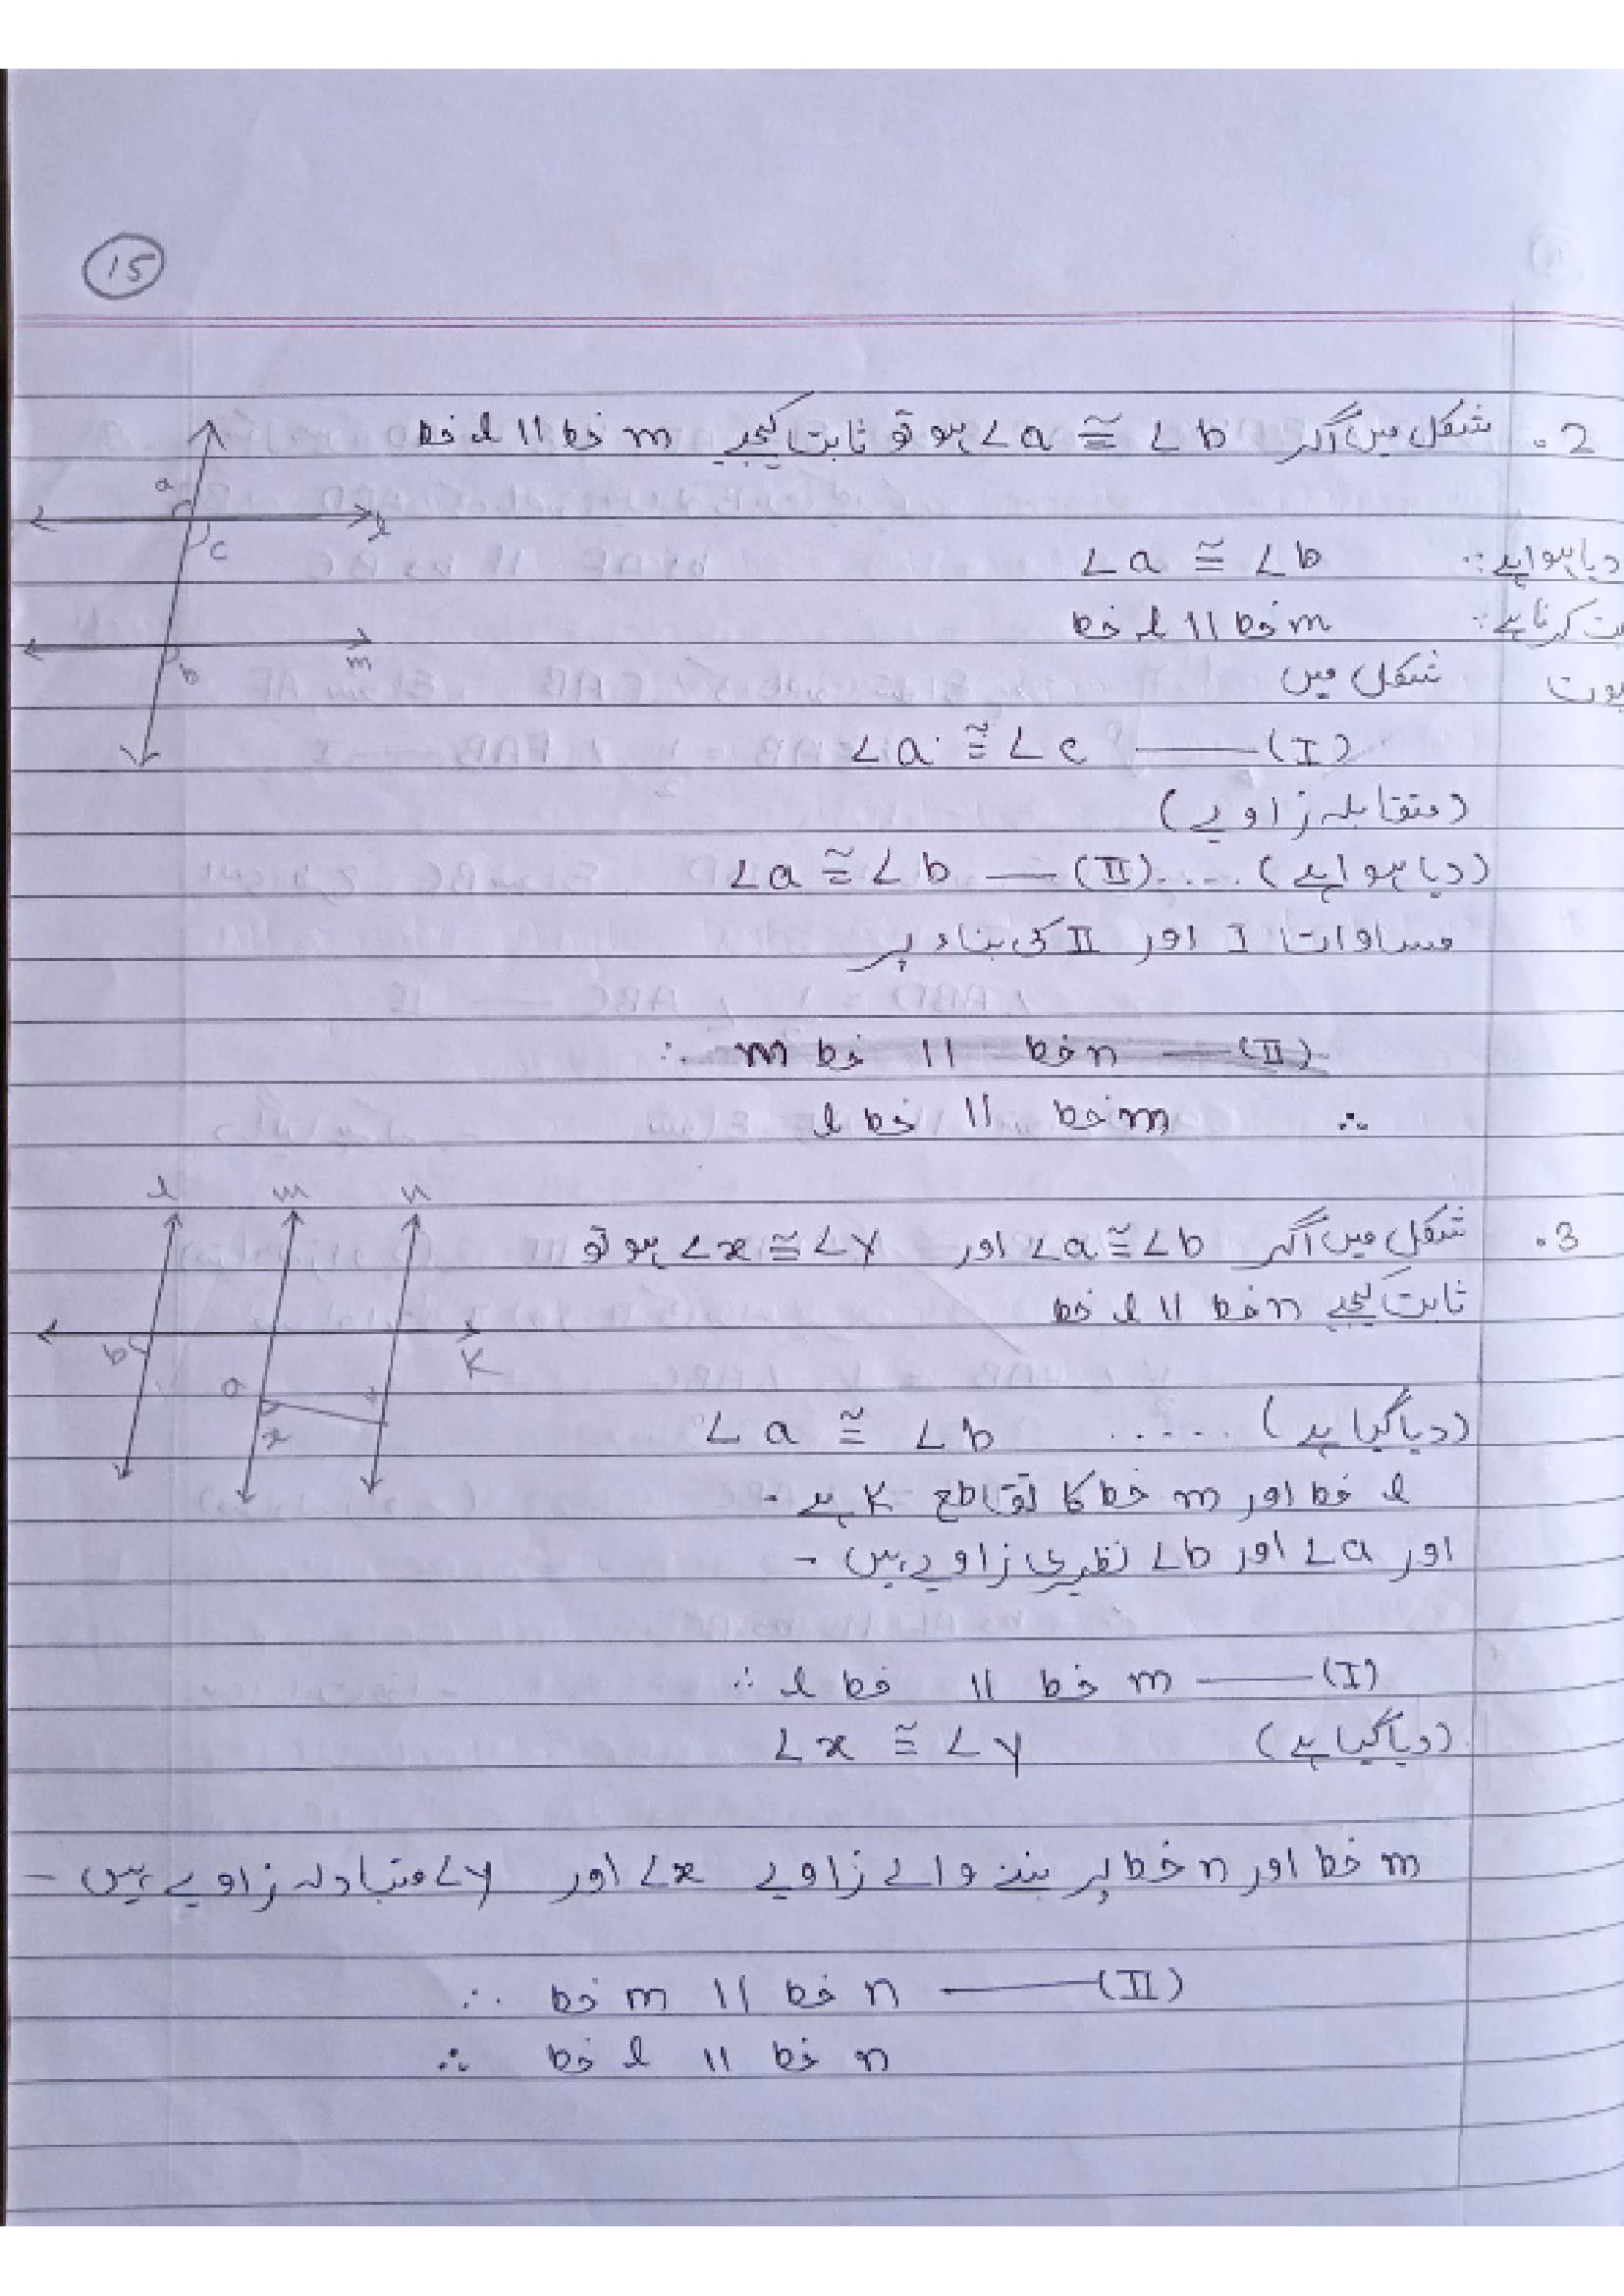 15
2. شکل میں اگر ∠a ≅ ∠b ہو تو ثابت کیجیے m خط || l خط
a
l
c
m
b
دیا ہوا ہے :. ∠a ≅ ∠b
کرنا ہے :. m خط || l خط
شکل میں
∠a ≅ ∠c —— (I)
(متقابلہ زاویے)
∠a ≅ ∠b — (II) .... (دیا ہوا ہے)
مساوات I اور II کی بناء پر
∴ m خط || n خط —— (II)
∴ m خط || l خط
l m n
b
K
a
x
3. شکل میں اگر ∠a ≅ ∠b اور ∠x ≅ ∠y ہو تو
ثابت کیجیے n خط || l خط
∠a ≅ ∠b ..... (دیا گیا ہے)
l خط اور m خط کا تقاطع K ہے -
اور ∠a اور ∠b نظیری زاویے ہیں -
∴ l خط || m خط —— (I)
∠x ≅ ∠y (دیا گیا ہے)
m خط اور n خط پر بننے والے زاویے ∠x اور ∠y متبادلہ زاویے ہیں -
∴ m خط || n خط —— (II)
∴ l خط || n خط